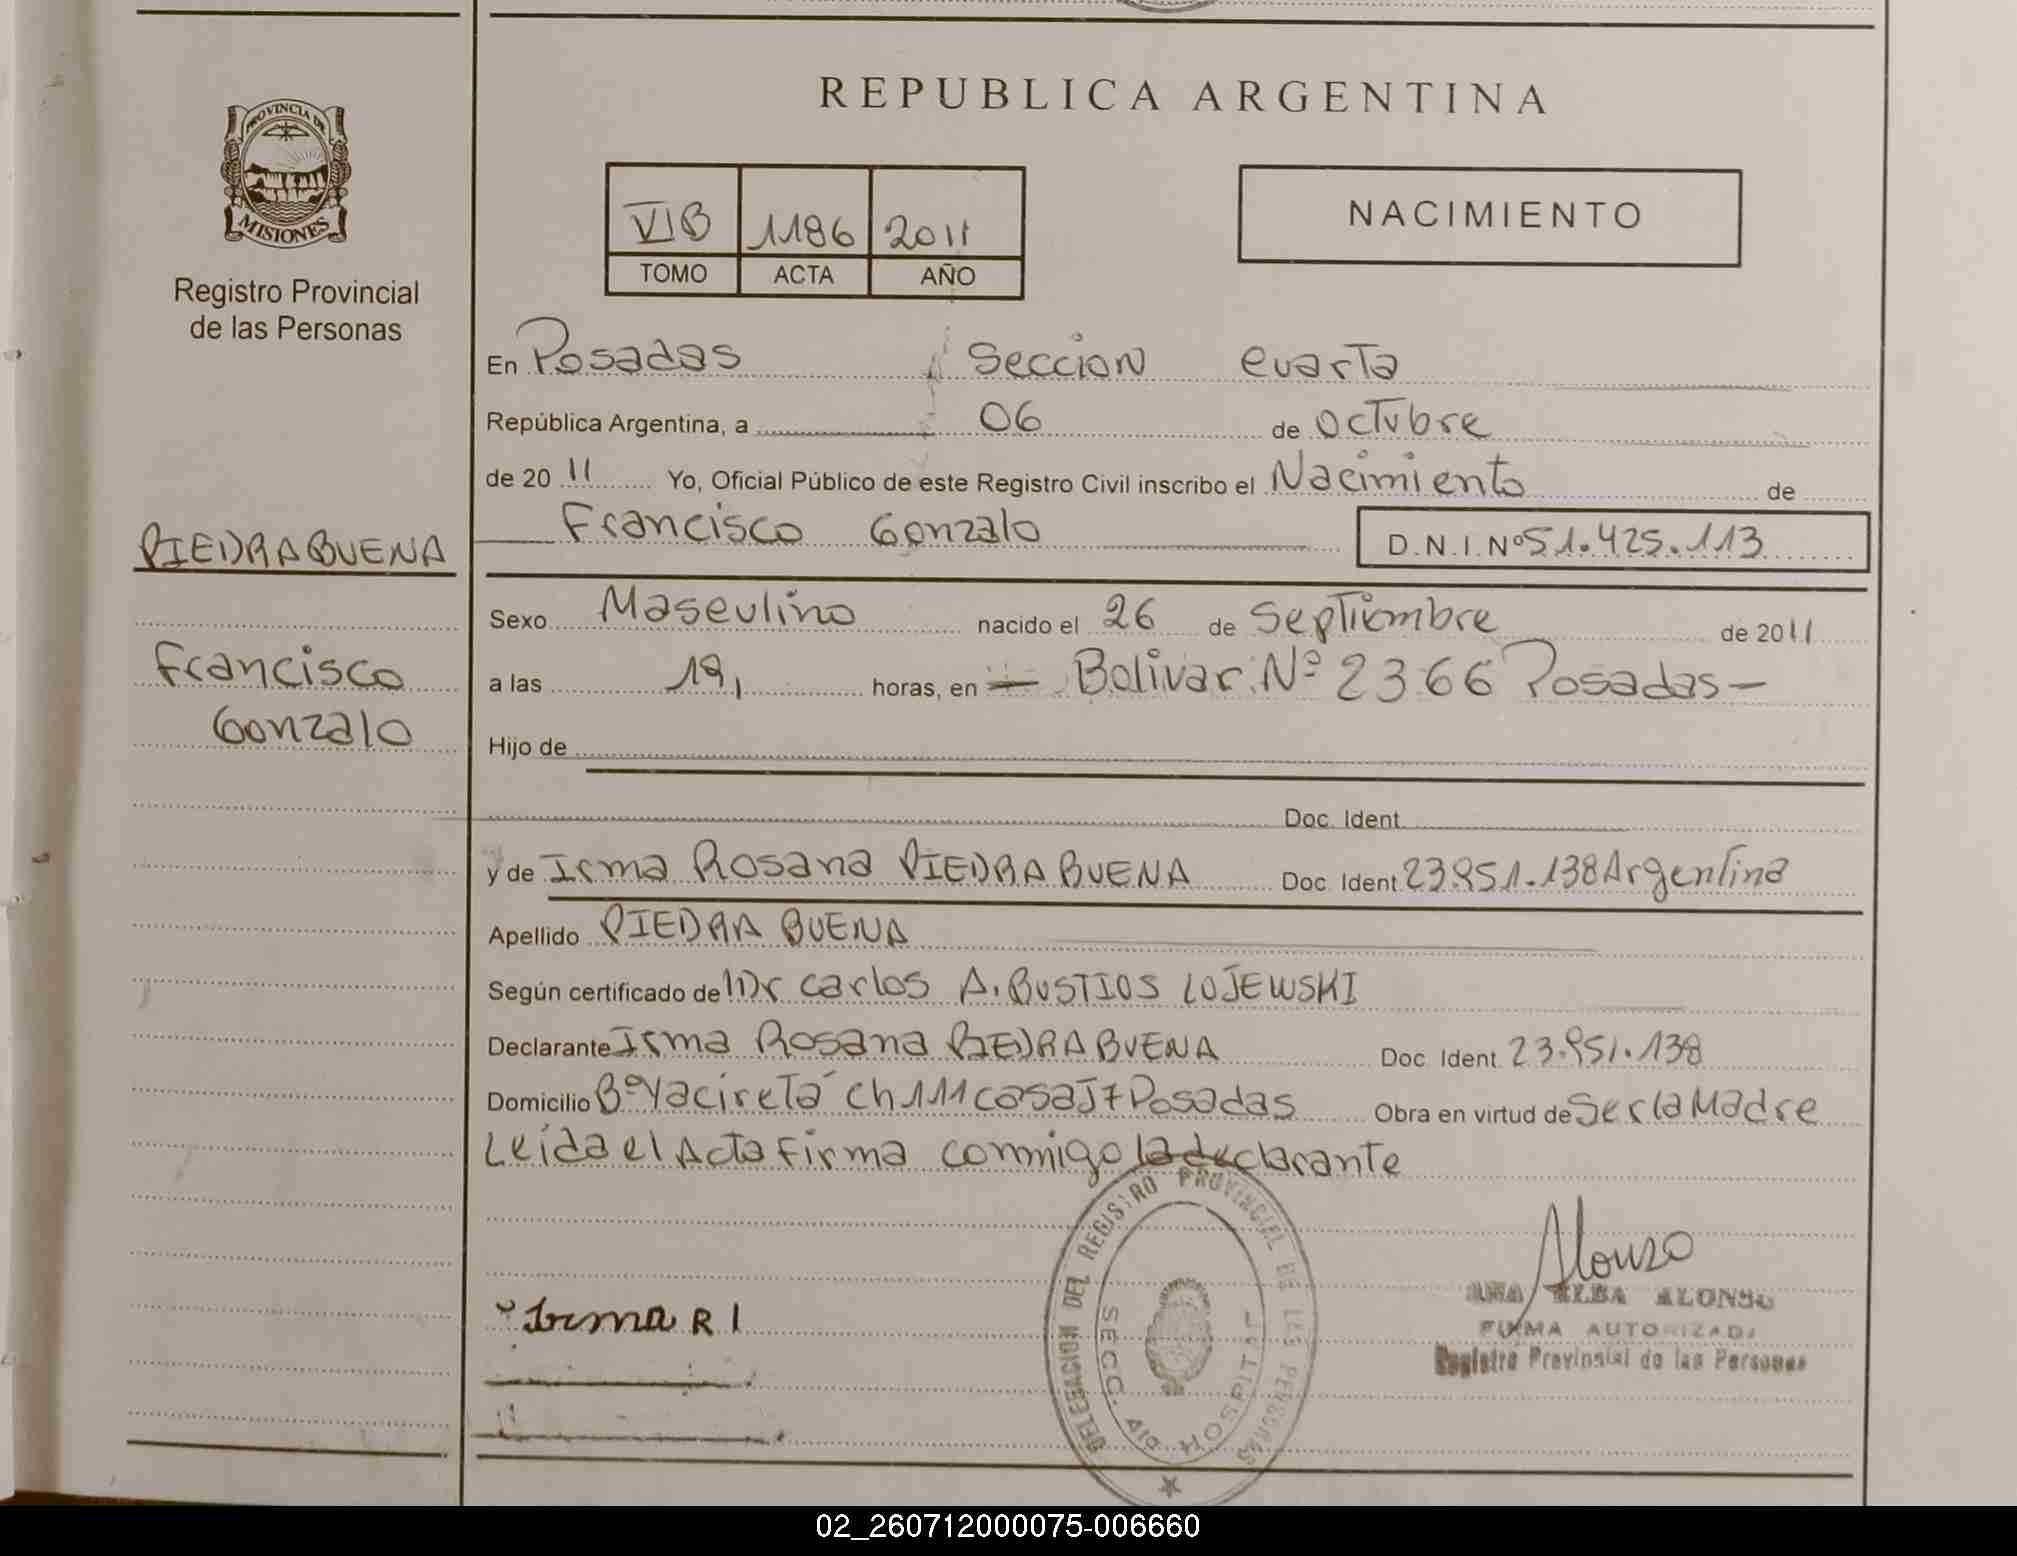 REPUBLICA ARGENTINA
PROVINCIA DE
MISIONES
Registro Provincial
de las Personas
VIB 1186 2011
TOMO ACTA AÑO
NACIMIENTO
En Posadas Seccion cuarta
República Argentina, a 06 de octubre
de 20 11 Yo, Oficial Público de este Registro Civil inscribo el Nacimiento de
Francisco Gonzalo D.N.I. Nº 51.425.113
PIEDRABUENA
Francisco
Gonzalo
Sexo Masculino nacido el 26 de Septiembre de 2011
a las 19, horas, en — Bolivar Nº 2366 Posadas —
Hijo de
Doc. Ident.
y de Irma Rosana PIEDRABUENA Doc. Ident. 23.951.138 Argentina
Apellido PIEDRA BUENA
Según certificado de Dr carlos A. BUSTIOS LOJEWSKI
Declarante Irma Rosana PIEDRABUENA Doc. Ident. 23.951.138
Domicilio Bº Yacireta ch 111 casa J7 Posadas Obra en virtud de Ser la Madre
Leida el Acta Firma conmigo la declarante
DELEGACION DEL REGISTRO PROVINCIAL DE LAS PERSONAS
SECC. 4ta HOSPITAL
Irma R
Alonso
ANA ELBA ALONSO
FIRMA AUTORIZADA
Registro Provincial de las Personas
02_260712000075-006660